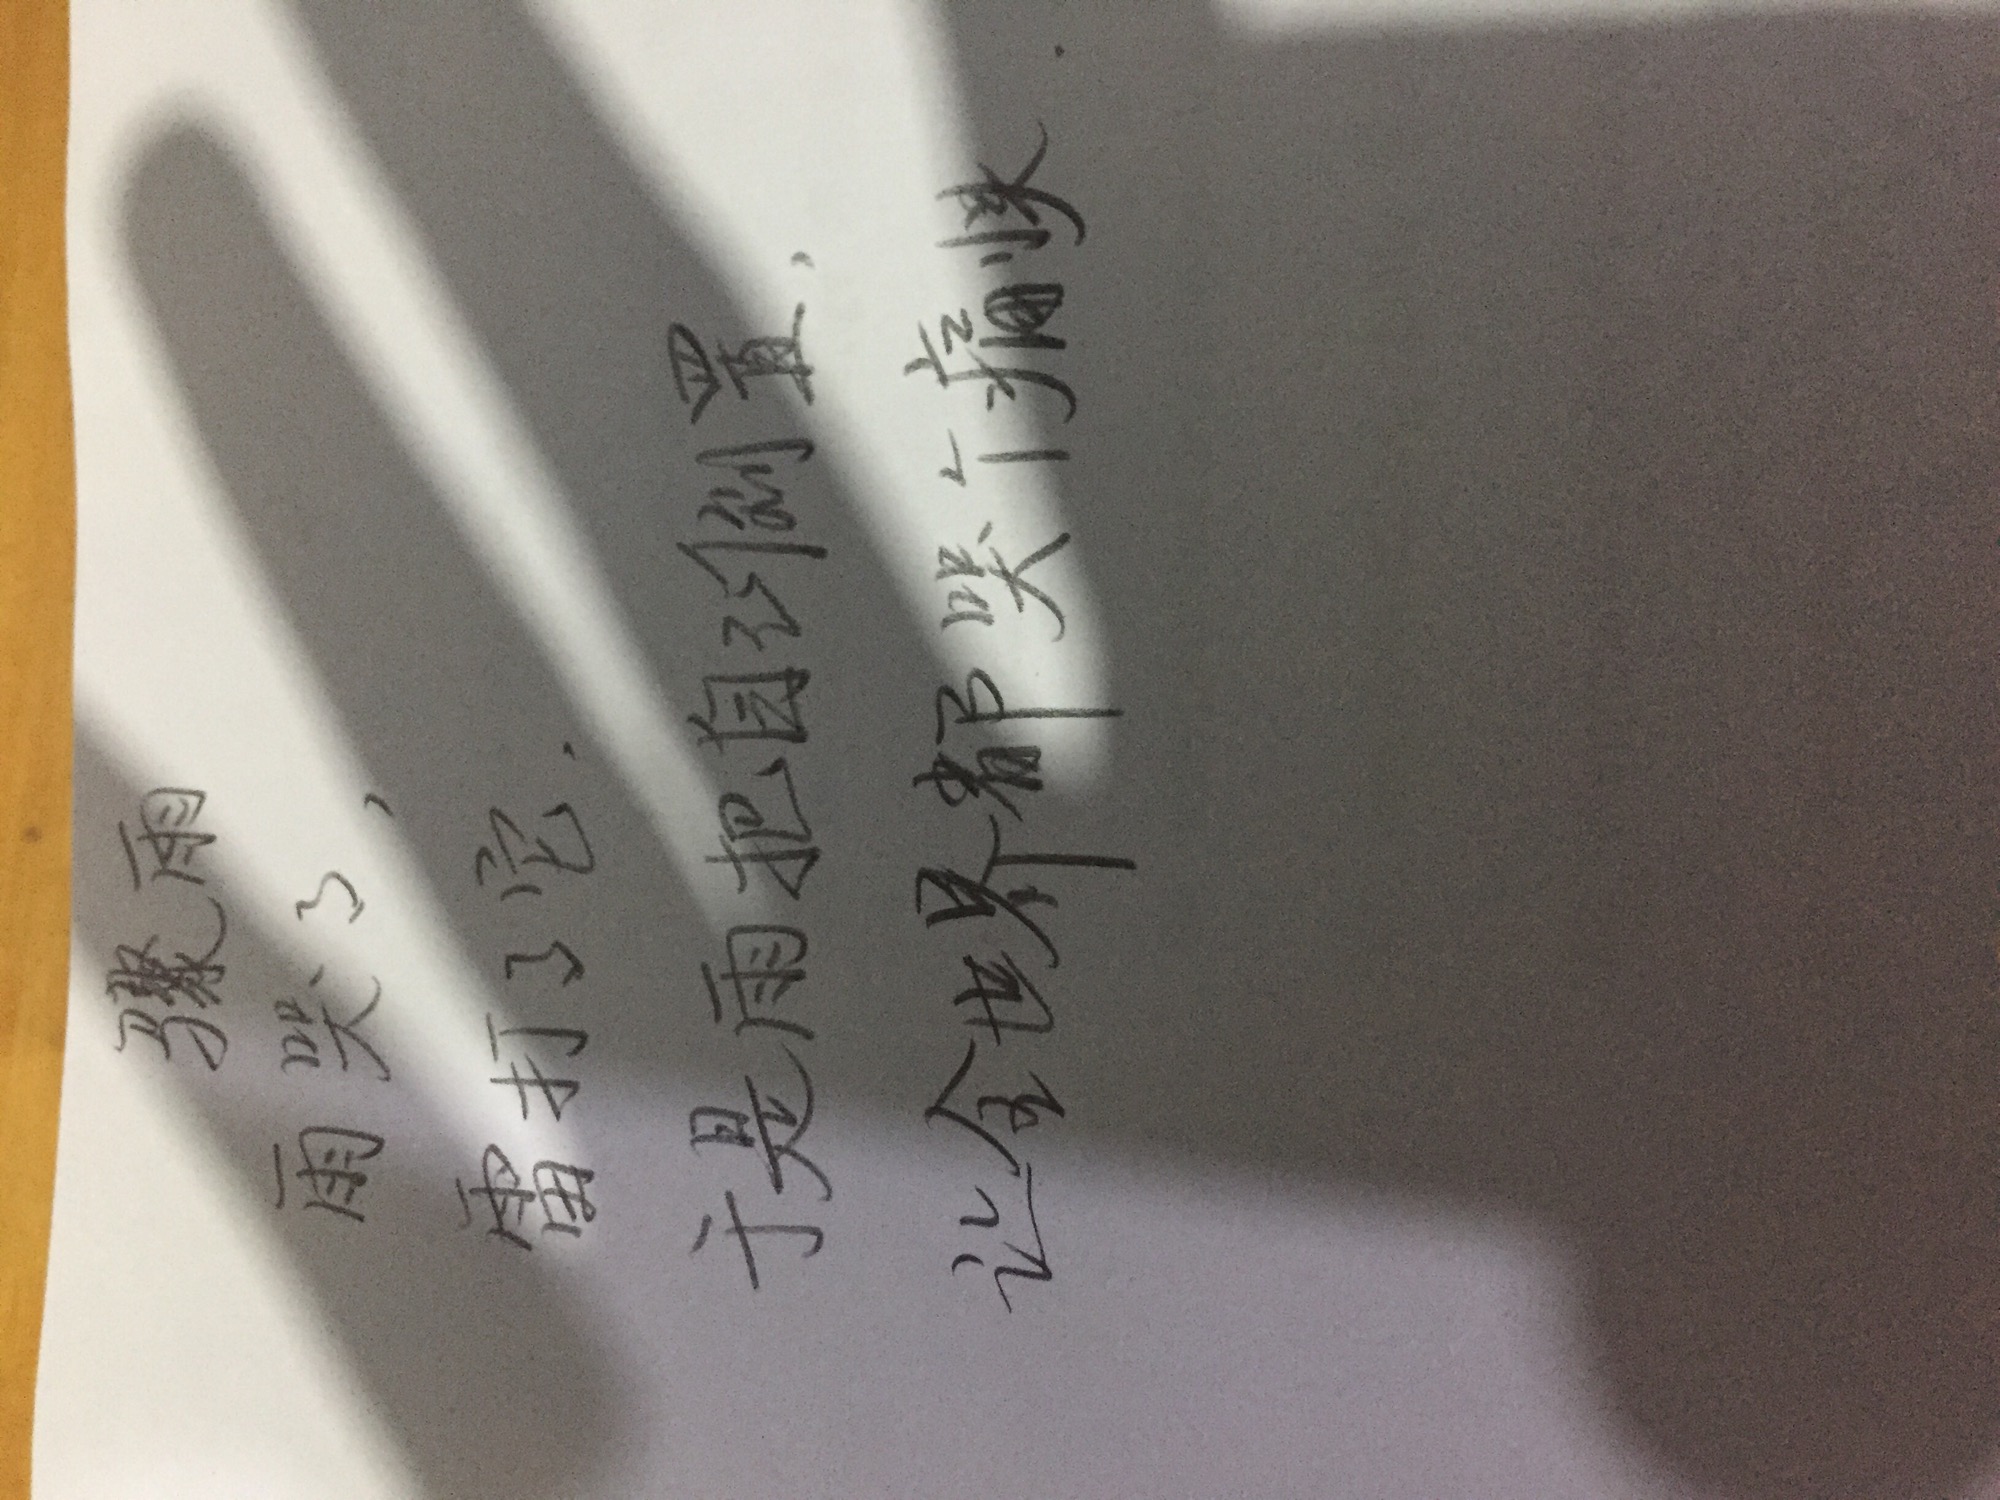 骤雨
雨哭了，
雷打了它.
于是雨把自己倒置，
让全世界都哭个痛快.